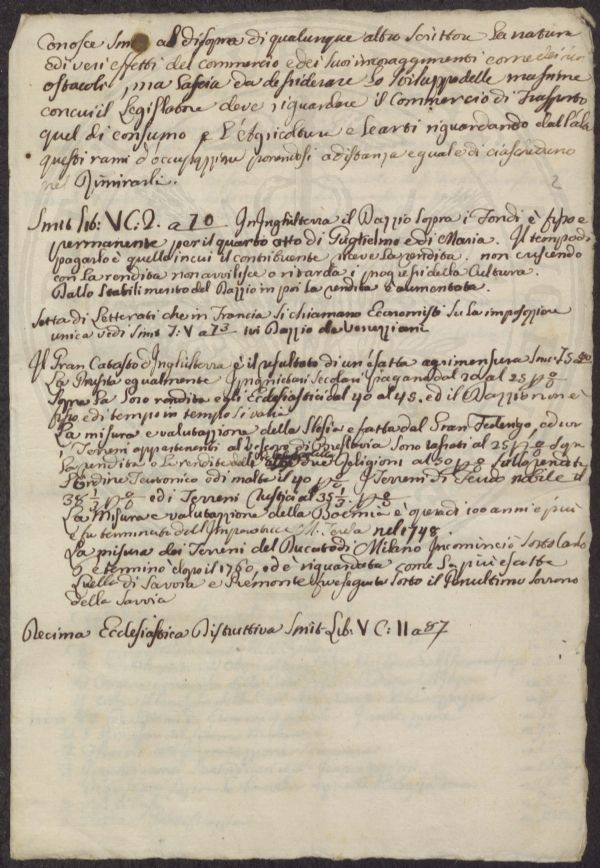 Conosce Smit al disopra di qualunque altro Scrittore La natura
ed i veri effetti del commercio e dei suoi incoraggimenti come dei suoi
ostacoli, ma lascia da desiderare Lo sviluppo delle massime
con cui il Legislatore deve riguardare il Commercio di Trasporto
quel di consumo e l'Agricoltura e Le arti riguardando
questi rami d'occupazione ponendosi a distanza eguale di ciascheduno
Rimirarli.
2
Smit Lib: V C: 2. a 70 In Inghilterra il Dazzio Sopra i Fondi è fisso e
permanente per il quarto atto di Guglielmo e di Maria. Il tempo di
pagarlo è quello in cui il contribuente riceve La rendita. non crescendo
con La rendita non avvilisce o ritarda i progressi della Cultura.
Dallo Stabilimento del Dazzio in poi la rendita è aumentata.
Setta di Letterati che in Francia Si chiamano Economisti Su la imposizzione
unica vedi Smit T: V a 73 ivi Dazzio de Veneziani
Il Gran Catasto d'Inghilterra è il resultato di un esatta agrimensura Smit T. 5
La Prussia egualmente I Proprietari Secolari pagano dal 20 al 25 p 0/0
Sopra La Loro rendita e gli Ecclesiastici dal 40 al 45, ed il Dazzio non è
fisso e di tempo in tempo si varia
La misura e valutazzione della Slesia e fatta dal Gran Federigo, ed ivi
i Terreni appartenenti al Vescovo di Breslavia Sono tassati al 25 p 0/0 Sopra
La rendita o Le rendite delle due Religioni al 50 p 0/0 Sulla rendita
L'ordine Teutonico o di malta il 40 p 0/0 I Terreni di Feudo nobile il
38 1/3 p 0/0 ed i Terreni rustici al 35 1/3 p 0/0
La Misura e valutazzione della Boemia è opera di 100 anni e più
e fu terminata dall'Imperatrice M. Teresa nel 1748.
La misura dei Terreni del Ducato di Milano Incominciò Sotto Carlo
6 e terminò dopo il 1760, ed è riguardata come La più esatta
Quella di Savoia e Piemonte fu eseguita Sotto il Penultimo Sovrano
della Savoia
Decima Ecclesiastica Distruttiva Smit Lib: V C: II a 87